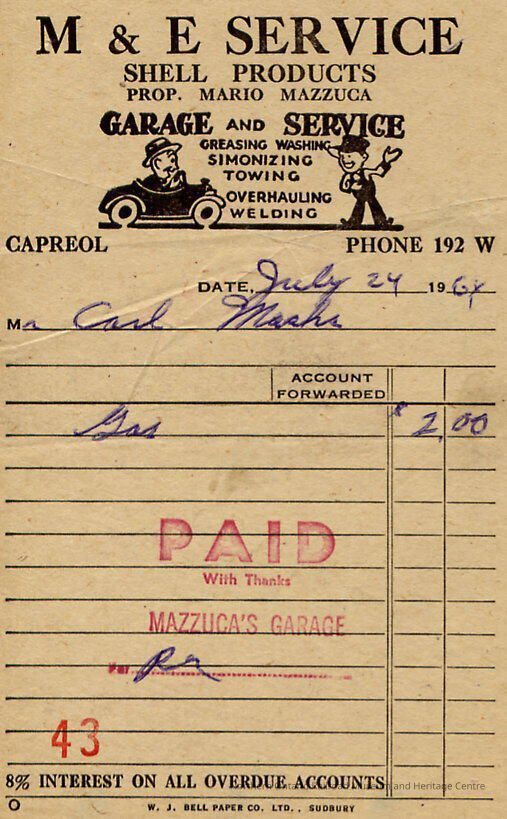 M & E SERVICE
SHELL PRODUCTS
PROP. MARIO MAZZUCA
GARAGE AND SERVICE
GREASING WASHING
SIMONIZING
TOWING
OVERHAULING
WELDING
CAPREOL PHONE 192 W
DATE, July 24 1964
Mr Carl
ACCOUNT
FORWARDED
Gas $ 2.00
PAID
With Thanks
MAZZUCA'S GARAGE
Per
43
8% INTEREST ON ALL OVERDUE ACCOUNTS
and Heritage Centre
W. J. BELL PAPER CO. LTD., SUDBURY